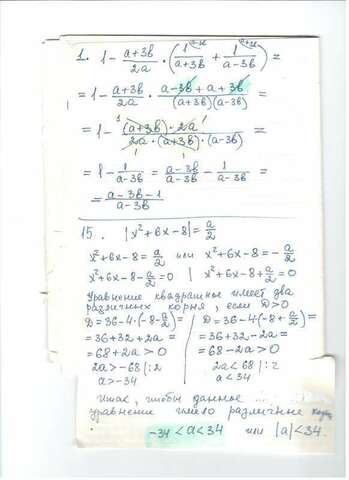 1. 1 - (a+3b)/2a · (1/(a+3b) + 1/(a-3b)) =
= 1 - (a+3b)/2a · (a-3b+a+3b)/((a+3b)(a-3b)) =
= 1 - ((a+3b)·2a)/(2a·(a+3b)·(a-3b)) =
= 1 - 1/(a-3b) = (a-3b)/(a-3b) - 1/(a-3b) =
= (a-3b-1)/(a-3b)
15. |x²+6x-8| = a/2
x²+6x-8 = a/2 или x²+6x-8 = -a/2
x²+6x-8-a/2=0 | x²+6x-8+a/2=0
Уравнение квадратное имеет два
различных корня, если D>0
D=36-4·(-8-a/2)= D=36-4·(-8+a/2)=
=36+32+2a= =36+32-2a=
=68+2a>0 =68-2a>0
2a>-68|:2 2a<68|:2
a>-34 a<34
Итак, чтобы данное
уравнение имело различные корн
-34<a<34 или |a|<34.